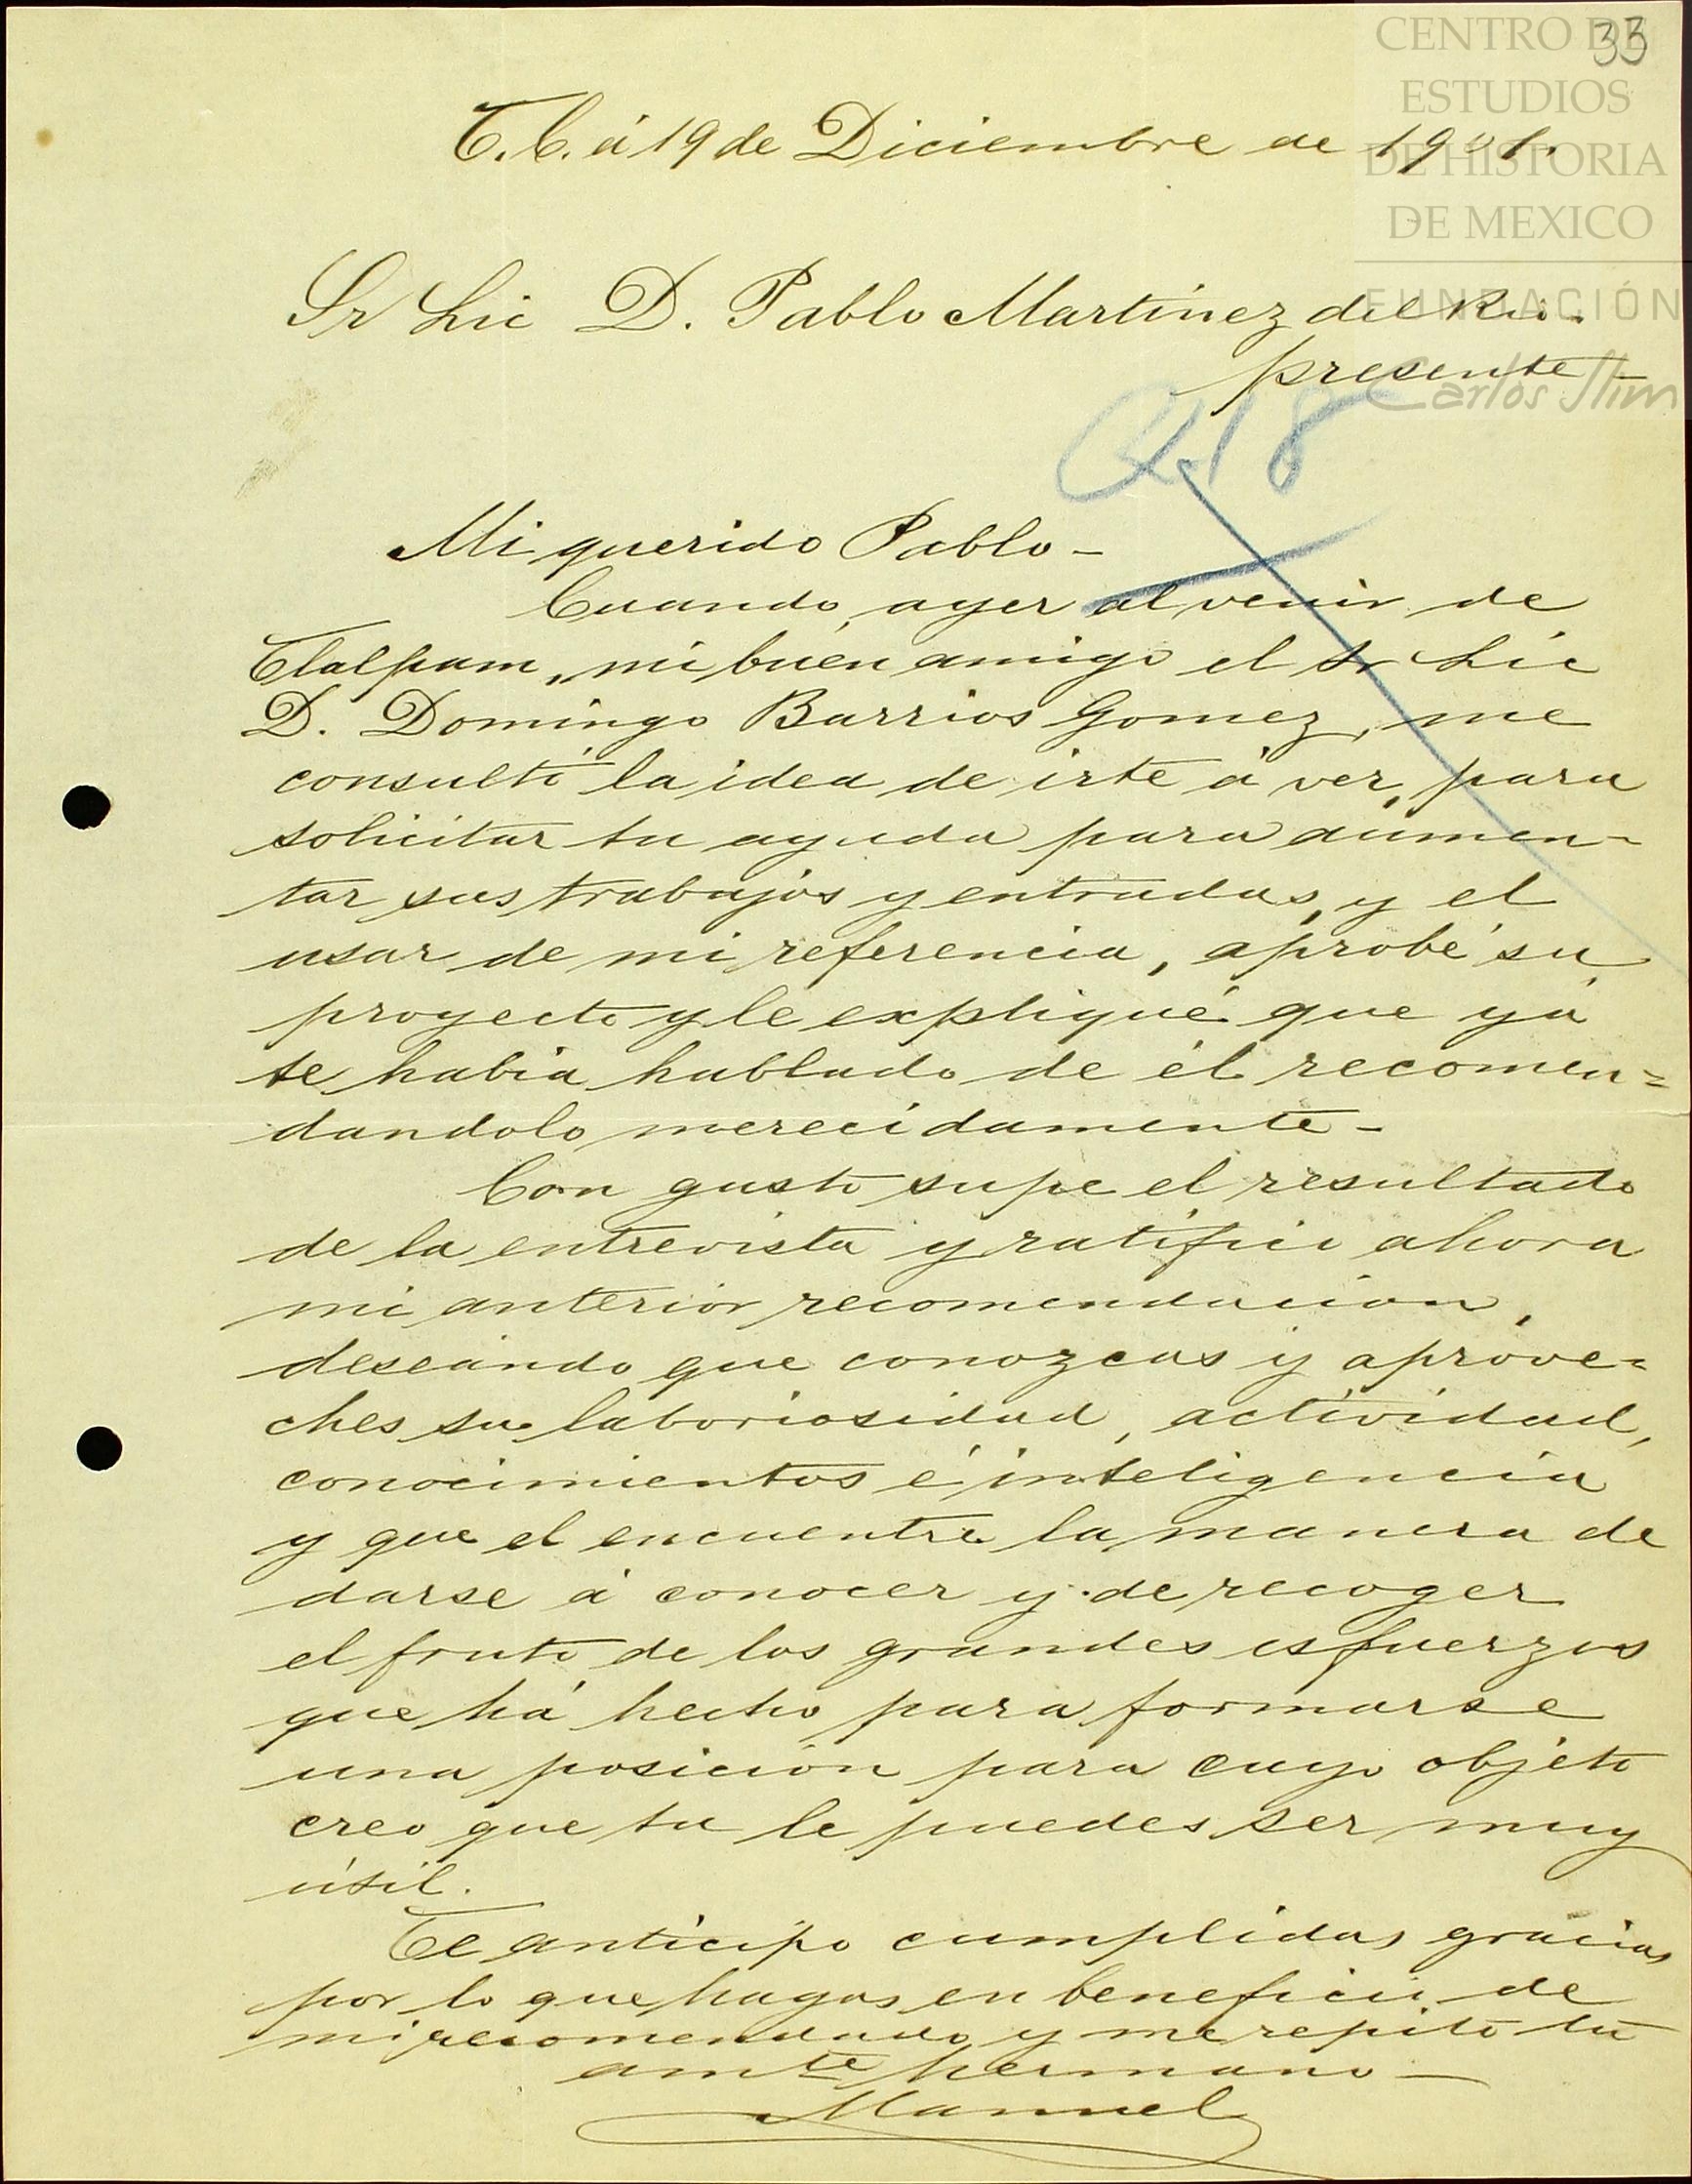 33
CENTRO DE
ESTUDIOS
DE HISTORIA
DE MEXICO
FUNDACIÓN
Carlos Slim
T.C. á 19 de Diciembre de 1901.
Sr Lic D. Pablo Martínez del Rio.
presente -
Mi querido Pablo -
Cuando, ayer al venir de
Tlalpam, mi buen amigo el Sr Lic
D. Domingo Barrios Gomez, me
consultó la idea de irte á ver, para
solicitar tu ayuda para aumen-
tar sus trabajos y entradas, y el
usar de mi referencia, aprobé su
proyecto y le expliqué que yá
te habia hablado de él recomen=
dandolo merecidamente -
Con gusto supe el resultado
de la entrevista y ratifico ahora
mi anterior recomendacion,
deseando que conozcas y aprove=
ches su laboriosidad, actividad,
conocimientos é inteligencia
y que el encuentre la manera de
darse á conocer y de recoger
el fruto de los grandes esfuerzos
que há hecho para formarse
una posicion para cuyo objeto
creo que tu le puedes ser muy
útil.
Te anticipo cumplidas gracias
por lo que hagas en beneficio de
mi recomendado y me repito tu
amte hermano -
Manuel